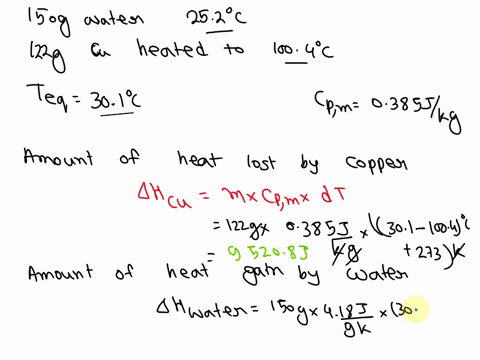 150g water 25.2°C
122g Cu heated to 100.4°C
Teq = 30.1°C
Cp,m = 0.385J/kg
Amount of heat lost by copper
ΔHCu = m x Cp,m x dT
= 122g x 0.385J/kg x ((30.1 - 100.4)°C + 273)K
= 9520.8J
Amount of heat gain by water
ΔHwater = 150g x 4.18J/gK x (30.